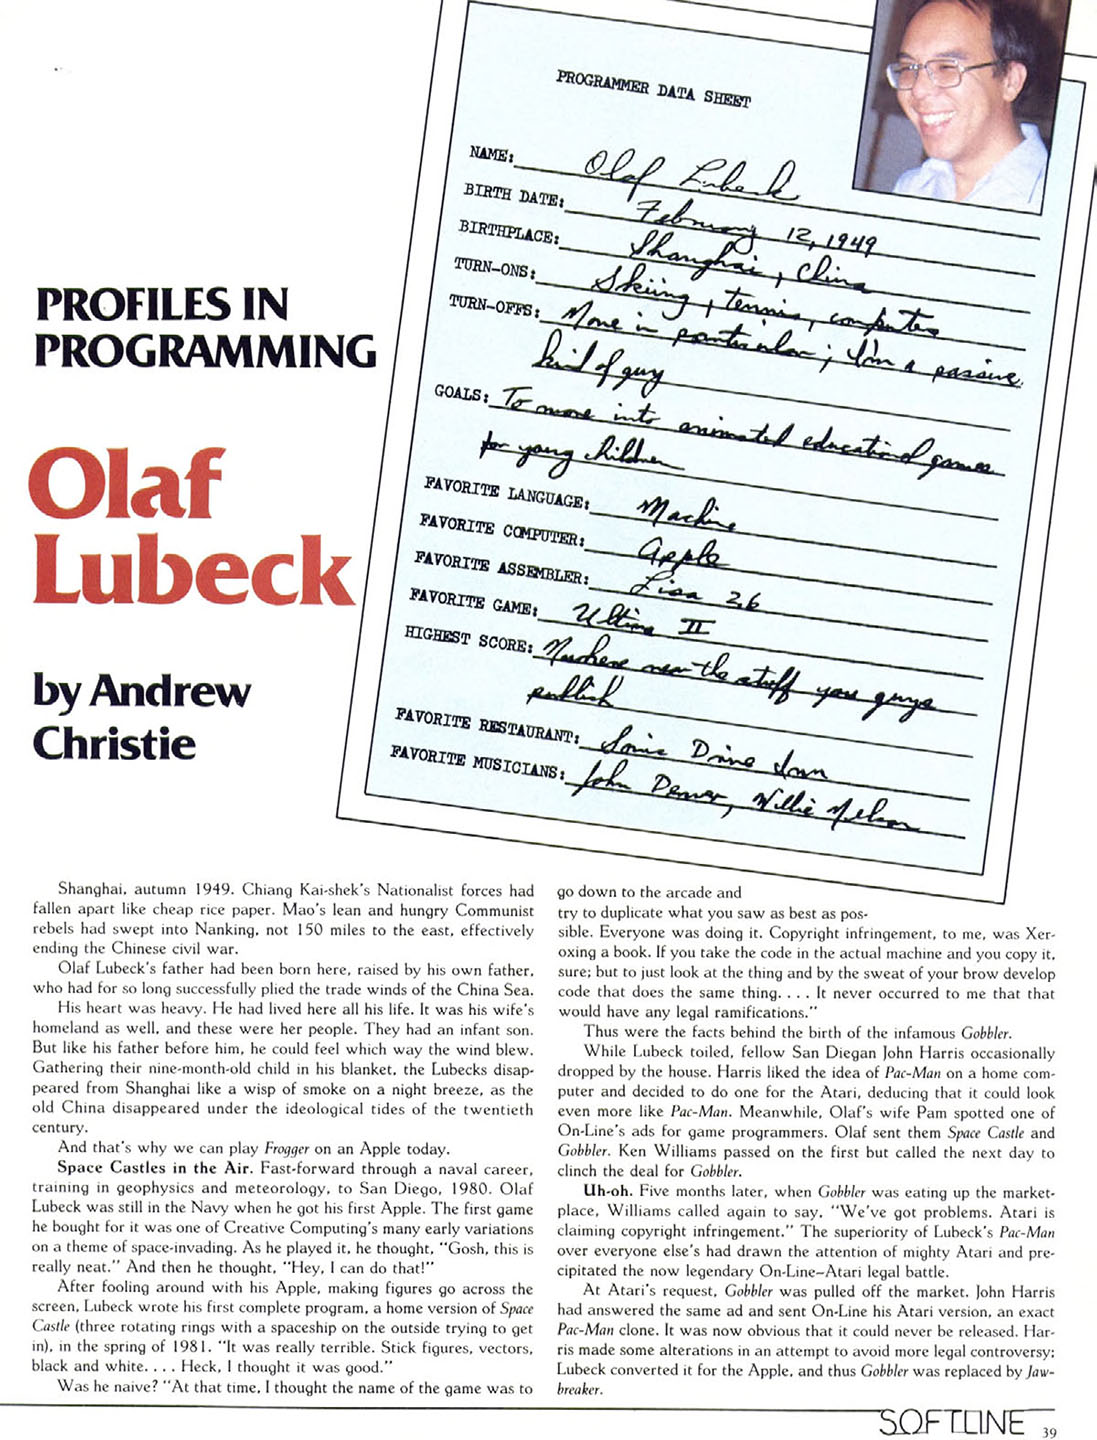 PROGRAMMER DATA SHEET
NAME: Olaf Lubeck
BIRTH DATE: February 12, 1949
BIRTHPLACE: Shanghai, China
TURN-ONS: Skiing, tennis, computers
TURN-OFFS: None in particular; I'm a passive
kind of guy
GOALS: To move into animated educational games
for young children
FAVORITE LANGUAGE: Machine
FAVORITE COMPUTER: Apple
FAVORITE ASSEMBLER: Lisa 2.6
FAVORITE GAME: Ultima II
HIGHEST SCORE: Nowhere near the stuff you guys
publish
FAVORITE RESTAURANT: Sonic Drive Inn
FAVORITE MUSICIANS: John Denver, Willie Nelson
PROFILES IN
PROGRAMMING
Olaf
Lubeck
by Andrew
Christie
Shanghai, autumn 1949. Chiang Kai-shek's Nationalist forces had
fallen apart like cheap rice paper. Mao's lean and hungry Communist
rebels had swept into Nanking, not 150 miles to the east, effectively
ending the Chinese civil war.
Olaf Lubeck's father had been born here, raised by his own father,
who had for so long successfully plied the trade winds of the China Sea.
His heart was heavy. He had lived here all his life. It was his wife's
homeland as well, and these were her people. They had an infant son.
But like his father before him, he could feel which way the wind blew.
Gathering their nine-month-old child in his blanket, the Lubecks disap-
peared from Shanghai like a wisp of smoke on a night breeze, as the
old China disappeared under the ideological tides of the twentieth
century.
And that's why we can play Frogger on an Apple today.
Space Castles in the Air. Fast-forward through a naval career,
training in geophysics and meteorology, to San Diego, 1980. Olaf
Lubeck was still in the Navy when he got his first Apple. The first game
he bought for it was one of Creative Computing's many early variations
on a theme of space-invading. As he played it, he thought, "Gosh, this is
really neat." And then he thought, "Hey, I can do that!"
After fooling around with his Apple, making figures go across the
screen, Lubeck wrote his first complete program, a home version of Space
Castle (three rotating rings with a spaceship on the outside trying to get
in), in the spring of 1981. "It was really terrible. Stick figures, vectors,
black and white. . . . Heck, I thought it was good."
Was he naive? "At that time, I thought the name of the game was to
go down to the arcade and
try to duplicate what you saw as best as pos-
sible. Everyone was doing it. Copyright infringement, to me, was Xer-
oxing a book. If you take the code in the actual machine and you copy it,
sure; but to just look at the thing and by the sweat of your brow develop
code that does the same thing. . . . It never occurred to me that that
would have any legal ramifications."
Thus were the facts behind the birth of the infamous Gobbler.
While Lubeck toiled, fellow San Diegan John Harris occasionally
dropped by the house. Harris liked the idea of Pac-Man on a home com-
puter and decided to do one for the Atari, deducing that it could look
even more like Pac-Man. Meanwhile, Olaf's wife Pam spotted one of
On-Line's ads for game programmers. Olaf sent them Space Castle and
Gobbler. Ken Williams passed on the first but called the next day to
clinch the deal for Gobbler.
Uh-oh. Five months later, when Gobbler was eating up the market-
place, Williams called again to say, "We've got problems. Atari is
claiming copyright infringement." The superiority of Lubeck's Pac-Man
over everyone else's had drawn the attention of mighty Atari and pre-
cipitated the now legendary On-Line–Atari legal battle.
At Atari's request, Gobbler was pulled off the market. John Harris
had answered the same ad and sent On-Line his Atari version, an exact
Pac-Man clone. It was now obvious that it could never be released. Har-
ris made some alterations in an attempt to avoid more legal controversy;
Lubeck converted it for the Apple, and thus Gobbler was replaced by Jaw-
breaker.
SOFTLINE 39